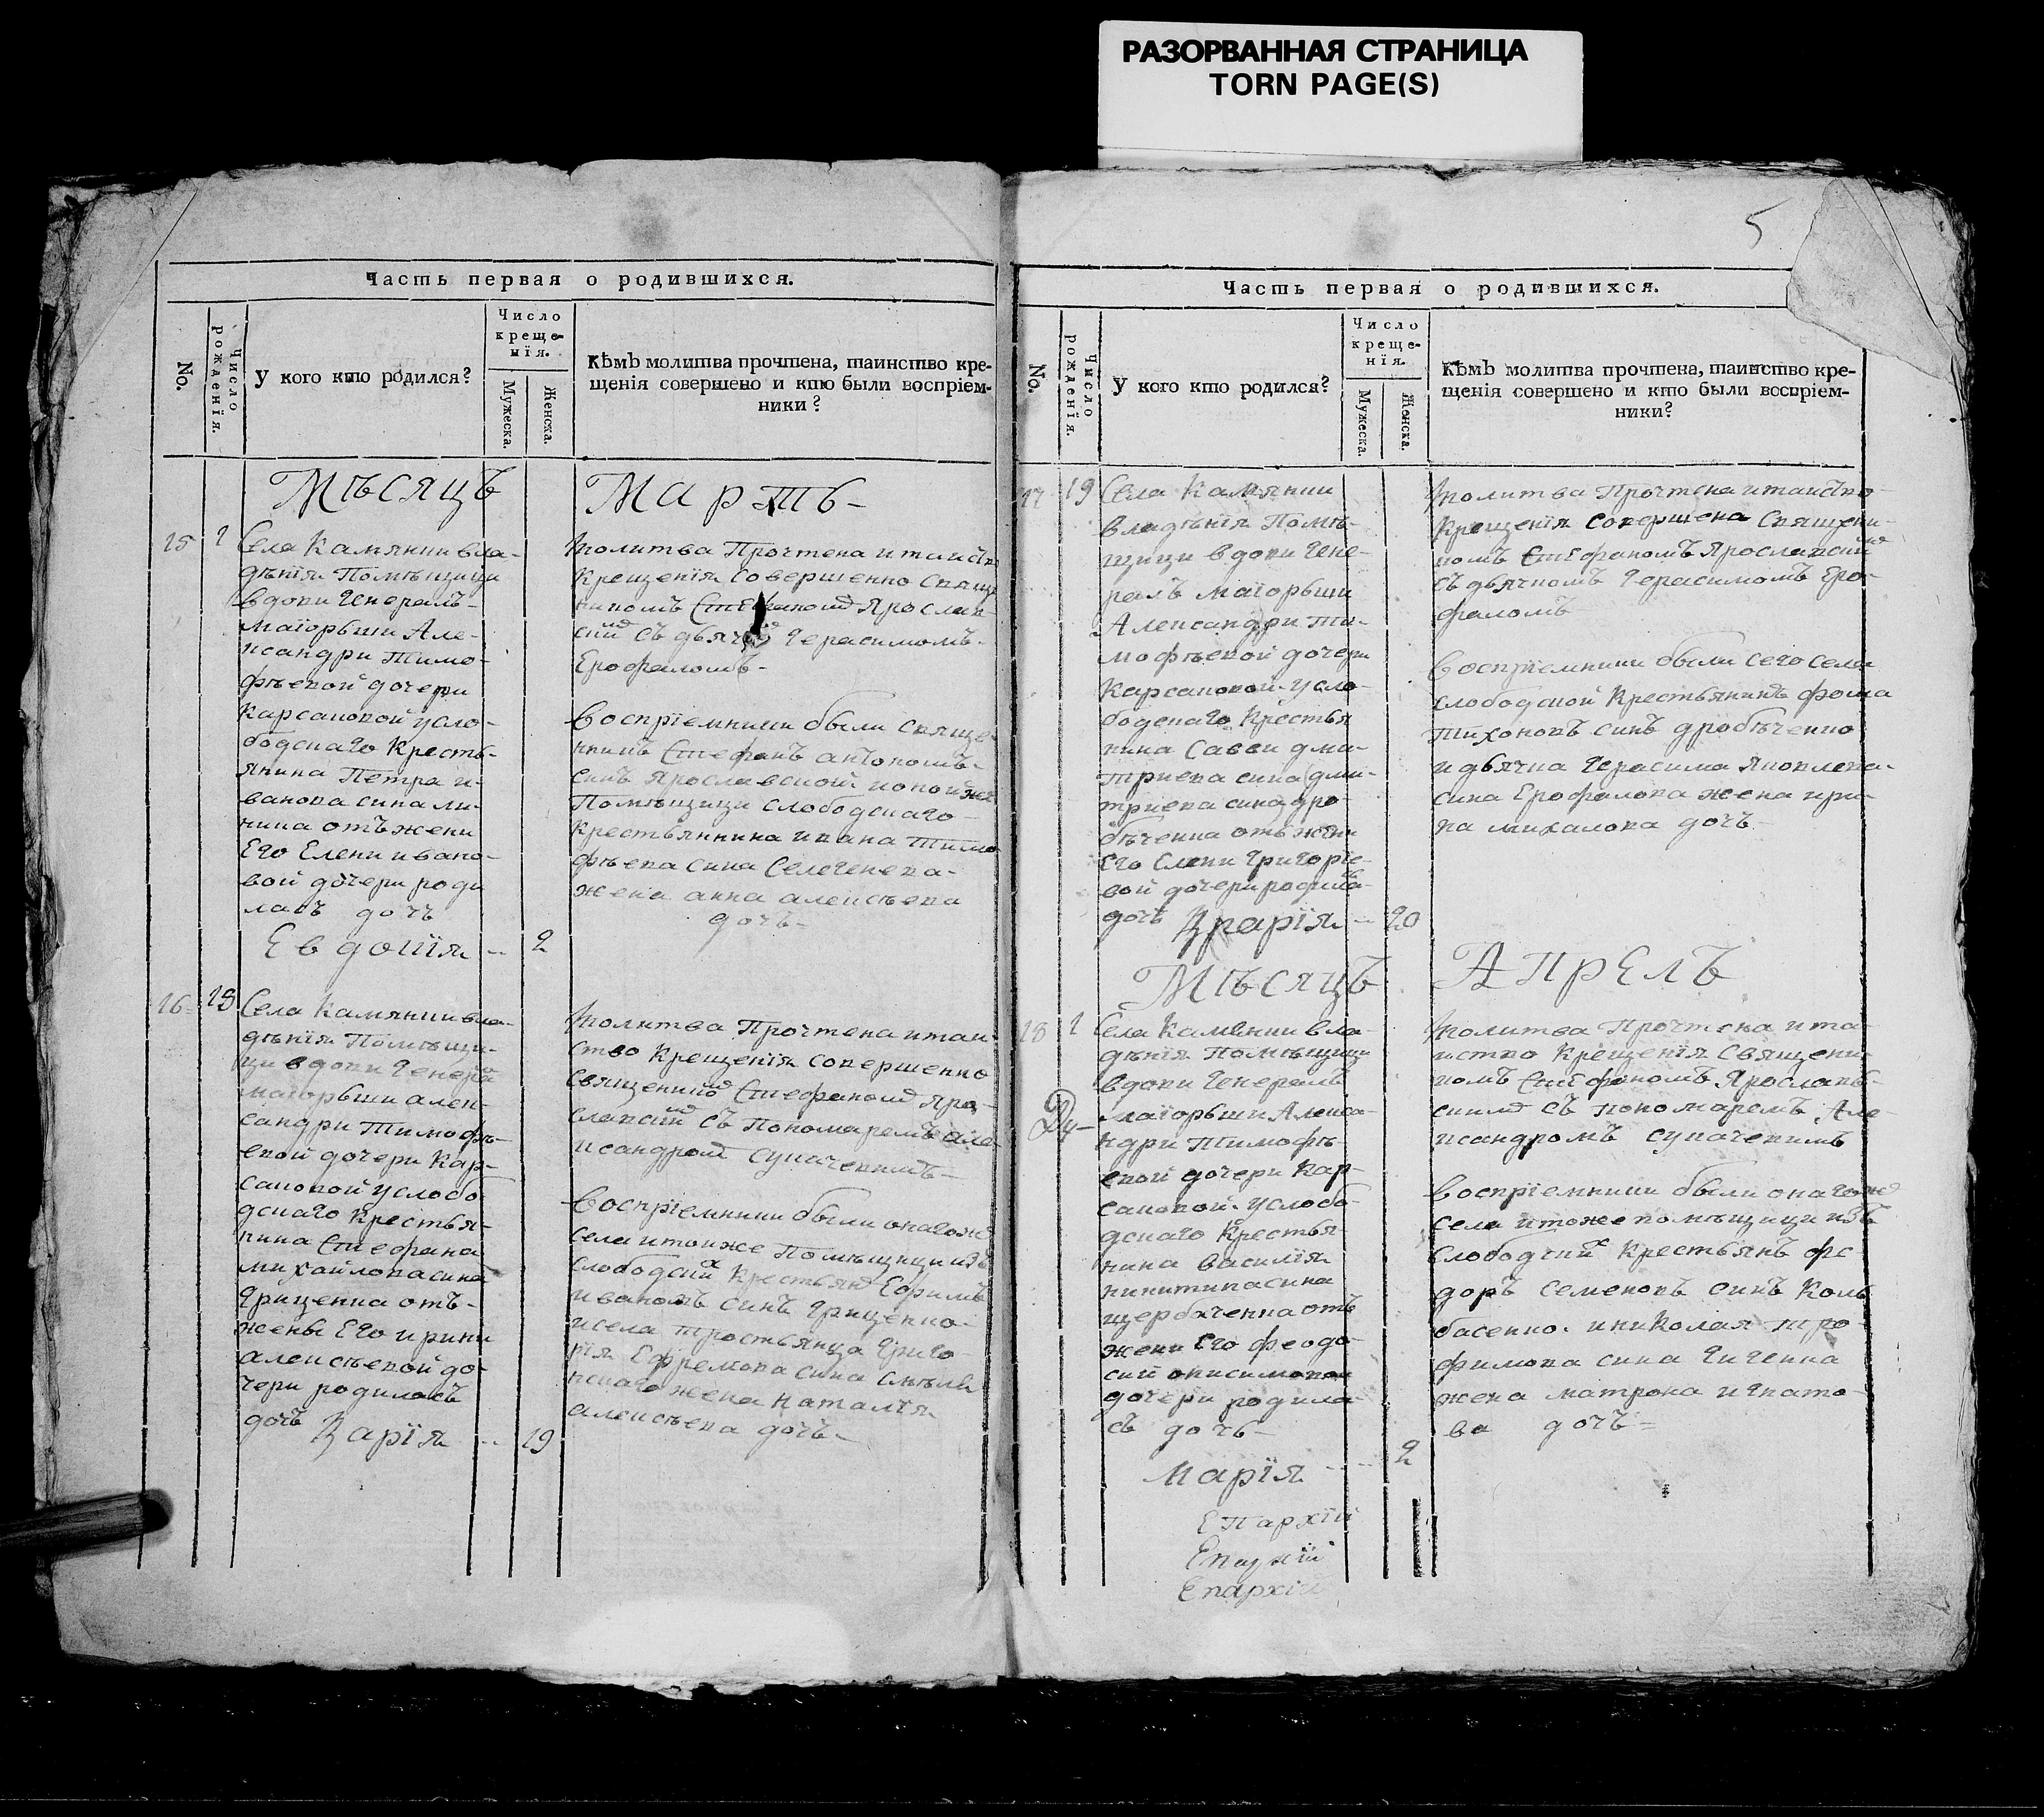 РАЗОРВАННАЯ СТРАНИЦА
TORN PAGE(S)
Часть первая о родившихся.
No.
Число рожденїя.
У кого кто родился?
Число
креще-
нїя.
Мужеска.
Женска.
Кѣмъ молитва прочтена, таинство кре-
щенія совершено и кто были воспріем-
ники?
Мѣсяцъ Мартъ
15 1
Села Камянки вла-
дѣнїя Помѣщици
вдови Генералъ-
маїорьши Але-
ксандри Тимо-
фѣевой дочери
Карсаковой усло-
бодскаго Кресть-
янина Петра и-
ванова сина
отъ жени
Его Елени ивано-
вой дочери роди
лась дочъ
Евдокїя 2
молитва Прочтена и таинст
Крещенїя Совершенно Свяще
никомъ Стефаномъ Яросла
ским съ дьячком Герасимомъ
Ерофаломъ
Воспрїемники были Свяще
нникъ Стефанъ антоновъ
Синъ Ярославской
Помѣщици слободскаго
Крестьянина ивана Тимо
фѣева сина Селегенева
жена анна алексѣева
дочъ
16 18
Села Камянки вла-
дѣнїя Помѣщи-
ци вдови Генерал
маїорьши алек-
сандри Тимофѣ-
евой дочери Кар-
саковой услобо
дскаго Крестья-
нина Стефана
михайлова сина
Гриценка отъ
жены Его ирини
алексѣевой до
чери родилась
дочъ Марїя 19
молитва Прочтена и таи
ство Крещенїя совершенно
Священиком Стефаном Яро
славским съ Пономаремъ але
ксандром
Воспрїемники были онагож
села и тойже Помѣщици изъ
слободских Крестьян Ефимъ
ивановъ синъ Гриценко
и села тростьянца Григо
рїя Ефремова сина
жена наталїя
алексѣева дочъ
5
Часть первая о родившихся.
No.
Число рожденїя.
У кого кто родился?
Число
креще-
нїя.
Мужеска.
Женска.
Кѣмъ молитва прочтена, таинство кре-
щенія совершено и кто были воспріем-
ники?
17 19
Села Камянки
владѣнїя Помѣ-
щици вдови Гене-
ралъ маїорьши
Александри Ти-
мофѣевой дочери
Карсаковой усло-
бодскаго Крестья
нина Савви дми-
триева сина дми-
триева сина дро-
бѣченка отъ жени
Его Елени Григорїе-
вой дочери родила
дочъ Марїя 20
молитва Прочтена и таинство
Крещенїя совершена Священи-
комъ Стефаномъ Ярославским
съ дьячкомъ Герасимомъ Еро-
фаломъ
Воспрїемники были сего села
слободской Крестьянинъ фома
Тихоновъ синъ дробѣченко
и дьячка Герасима Яковлева
сина Ерофалова жена ири-
на михалова дочъ
Мѣсяцъ АПРЕЛЪ
18 1
Села Камянки вла-
дѣнїя Помѣщици
вдови Генералъ
маїорьши Алекса-
ндри Тимофѣ-
евой дочери Кар-
саковой услобо-
дскаго Крестья-
нина Василїя
никитина сина
щербаченка отъ
жени Его феодо-
сии онисимовой
дочери родила
съ дочъ
Марїя 2
молитва Прочтена и та-
инство Крещенїя Священи
комъ Стефаномъ Ярославъ-
ским съ пономаремъ Але-
ксандромъ
Воспрїемники были онагож
села и тоже помѣщици изъ
слободских Крестьянъ фе
доръ Семеновъ синъ Колъ
басенко и николая тро-
фимова сина
жена матрона игнато-
ва дочъ
Епархїй
Епархїй